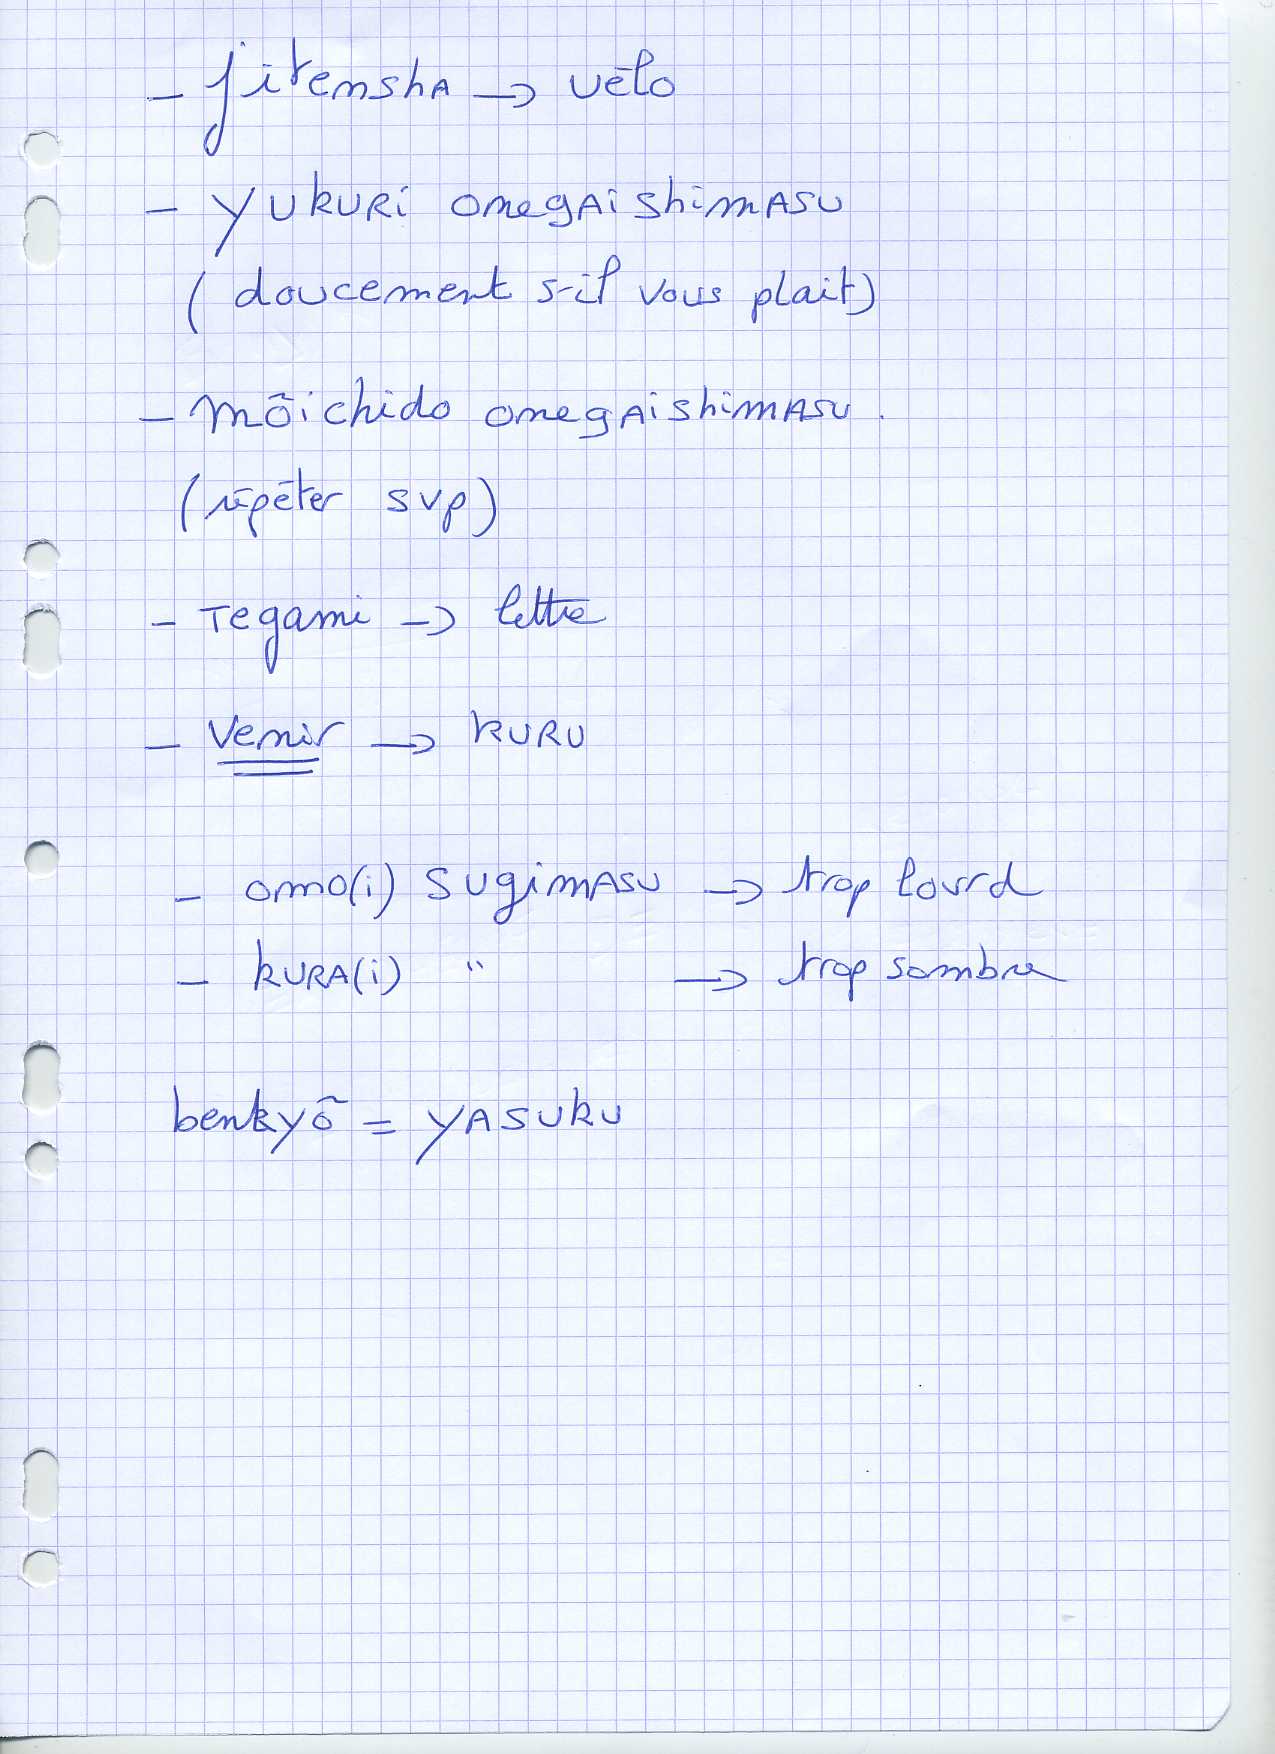 - jitensha → vélo
- YUKURi onegAishimASU
(doucement s-il vous plait)
- môichido onegAishimASU.
(répéter svp)
- Tegami → lettre
- Venir → KURU
- omo(i) SUgimASU → trop lourd
- KURA(i) " → trop sombre
benkyô = YASUKU